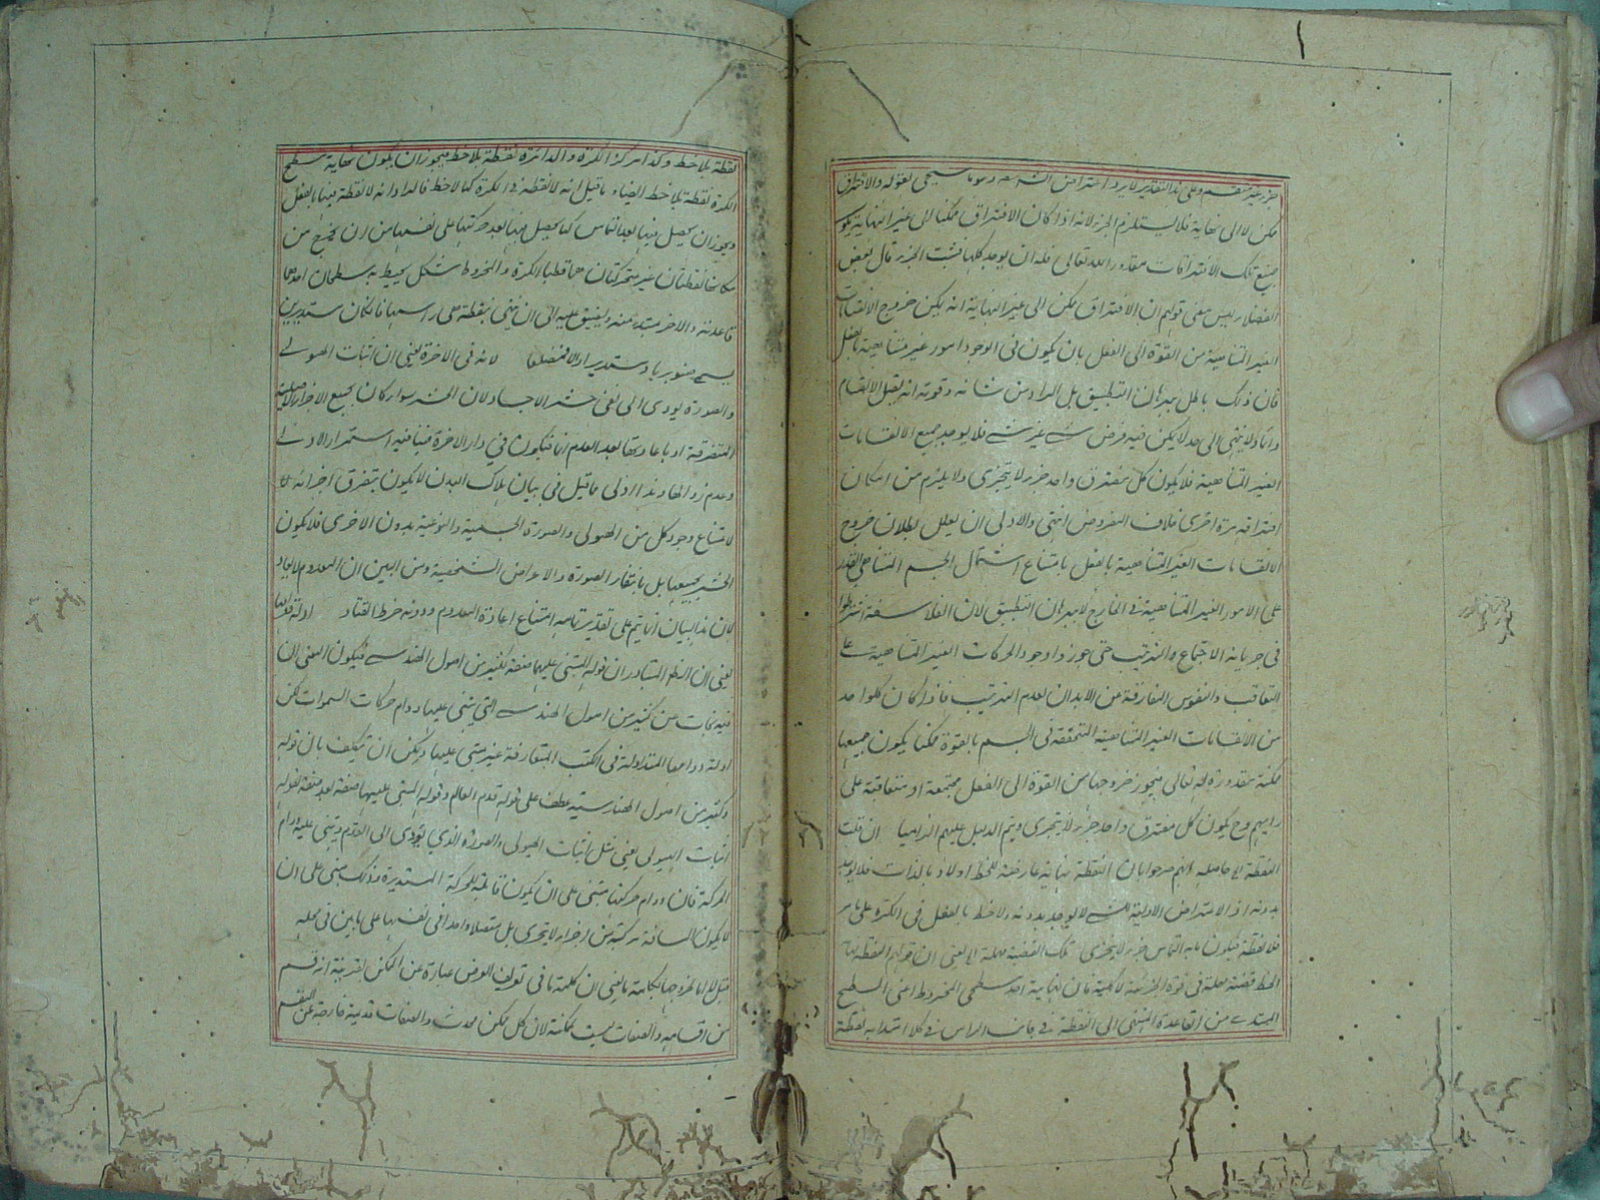 ممكن لا الى نهاية فلا يستلزم الجزء لانه اذا كان الافتراق ممكنا الى غير النهاية يكون
جميع تلك الافتراقات مقدور الله تعالى فله ان يوجد كلها فثبت الجزء قال بعض
الفضلاء ليس معنى قولهم ان الافتراق يمكن الى غير النهاية انه يمكن خروج الانقسامات
الغير المتناهية من القوة الى الفعل بان يكون فى الوجود امور غير متناهية بالفعل
فان ذلك باطل ببرهان التطبيق بل المراد من شانه وقوته انه يقبل الانقسام
دائما ولا ينتهى الى حد لا يمكن فيه فرض شئ غير شئ فلا يوجد جميع الانقسامات
الغير المتناهية فلا يكون كل مفترق واحد جزء لا يتجزى ولا يلزم من امكان
افتراقه مرة اخرى خلاف المفروض انتهى والاولى ان يعلل بطلان خروج
الانقسامات الغير المتناهية بالفعل بامتناع اشتمال الجسم المتناهى المقدار
على الامور الغير المتناهية فى الخارج لا ببرهان التطبيق لان الفلاسفة اشترطوا
فى جريانه الاجتماع والترتيب حتى جوزوا وجود الحركات الغير المتناهية على
التعاقب والنفوس المفارقة عن الابدان لعدم الترتيب فاذا كان كلوا حد
من الانقسامات الغير المتناهية المتحققة فى الجسم بالقوة ممكنا يكون جميعها
ممكنة مقدورة له تعالى فيجوز خروجها من القوة الى الفعل مجتمعة او متعاقبة على
رايهم وح يكون كل مفترق واحد جزء لا يتجزى ويتم الدليل عليهم الزاميا ان قلت
النقطة الى حاصله انهم صرحوا بان النقطة نهاية عارضة للخط اولا وبالذات فلا يوجد
بدونه اذ الاعتراض الاولية لشئ لا يوجد بدونه ولا خط بالفعل فى الكرة على ما مر
فلا نقطة فيكون ما به التماس جزء لا يتجزى تلك القضية مهملة الى يعنى ان قولهم النقطة نهاية
الخط قضية مهملة فى قوة الجزئية لا كلية فان نهاية احد سطحى المخروط اعنى السطح
المبتدى من القاعدة المنتهى الى النقطة فى جانب الراس فى كلا امتداديه نقطة
نقطة بلا خط وكذا مركز الكرة والدائرة نقطة بلا خط فيجوز ان يكون نهاية سطح
الكرة نقطة بلا خط ايضا، ما قيل انه لا نقطة فى الكرة كما لا خط فالمراد انه لا نقطة فيها بالفعل
ويجوز ان يحصل فيها بعد التماس كما يحصل فيها بعد حركتها على نفسها من ان يخرج من
مكانها نقطتان غير متحركتان هما قطبا الكرة والمخروط شكل يحيط به سطحان احدهما
قاعدته والاخر مبتدء منه ويضيق عليه الى ان ينتهى بنقطة على راسها فان كان مستديرين
يسمى صنوبريا ومستديرا والا فمضلعا لانه فى الاخرة يعنى ان اثبات الهيولى
والصورة يودى الى نفى حشر الاجساد لان الحشر سواء كان بجمع الاجزاء الاصلية
المتفرقة او باعادتها بعد العدم انما يكون فى دار الاخرة فينافيه استمرار الاولى
وعدم زوالها وهذا اولى مما قيل فى بيان هلاك البدن لا يكون بتفرق اجزائه
لامتناع وجود كل من الهيولى والصورة الجسمية والنوعية بدون الاخرى فلا يكون
الحشر بجمعها بل بانتفاء الصورة والاعراض الشخصية ومن البين ان المعدوم لا يعاد
لان هذا البيان انما يتم على تقدير تمامه امتناع اعادة المعدوم ودونه خرط القتاد
يعنى ان الظاهر المتبادر ان قوله المبتنى عليها صفة لكثير من اصول الهندسة فيكون المعنى ان
فيه نجات من كثير من اصول الهندسة التى يبتنى عليها دوام حركات السموات لكن
ادلة دوامها المتداولة فى الكتب المتعارفة غير مبتنى عليها ويمكن ان يتكلف بان قوله
وكثير من اصول الهندسية عطف على قوله قدم العالم وقوله المبتنى عليها صفة بعد صفة لقوله
اثبات الهيولى يعنى مثل اثبات الهيولى والصورة الذى يؤدى الى القدم ويبتنى عليه دوام
الحركة فان دوام حركتها يبتنى على ان يكون قابلة للحركة المستديرة وذلك مبنى على ان
لا يكون المسافة مركبة من اجزاء لا يتجزى بل متصلا واحدا فى نفسها على ما بين فى محله
من اقسامه والصفات ليست ممكنة لان كل ممكن محدث والصفات قديمة خارجة عن المقسم